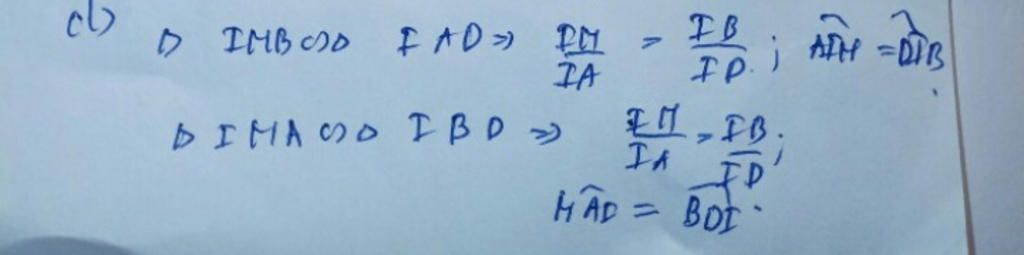 d) Δ IMB ∽ Δ IAD ⇒ IM/IA = IB/ID ; AIM = DIB.
Δ IMA ∽ Δ IBD ⇒ IM/IA = IB/ID ;
MAD = BDI.